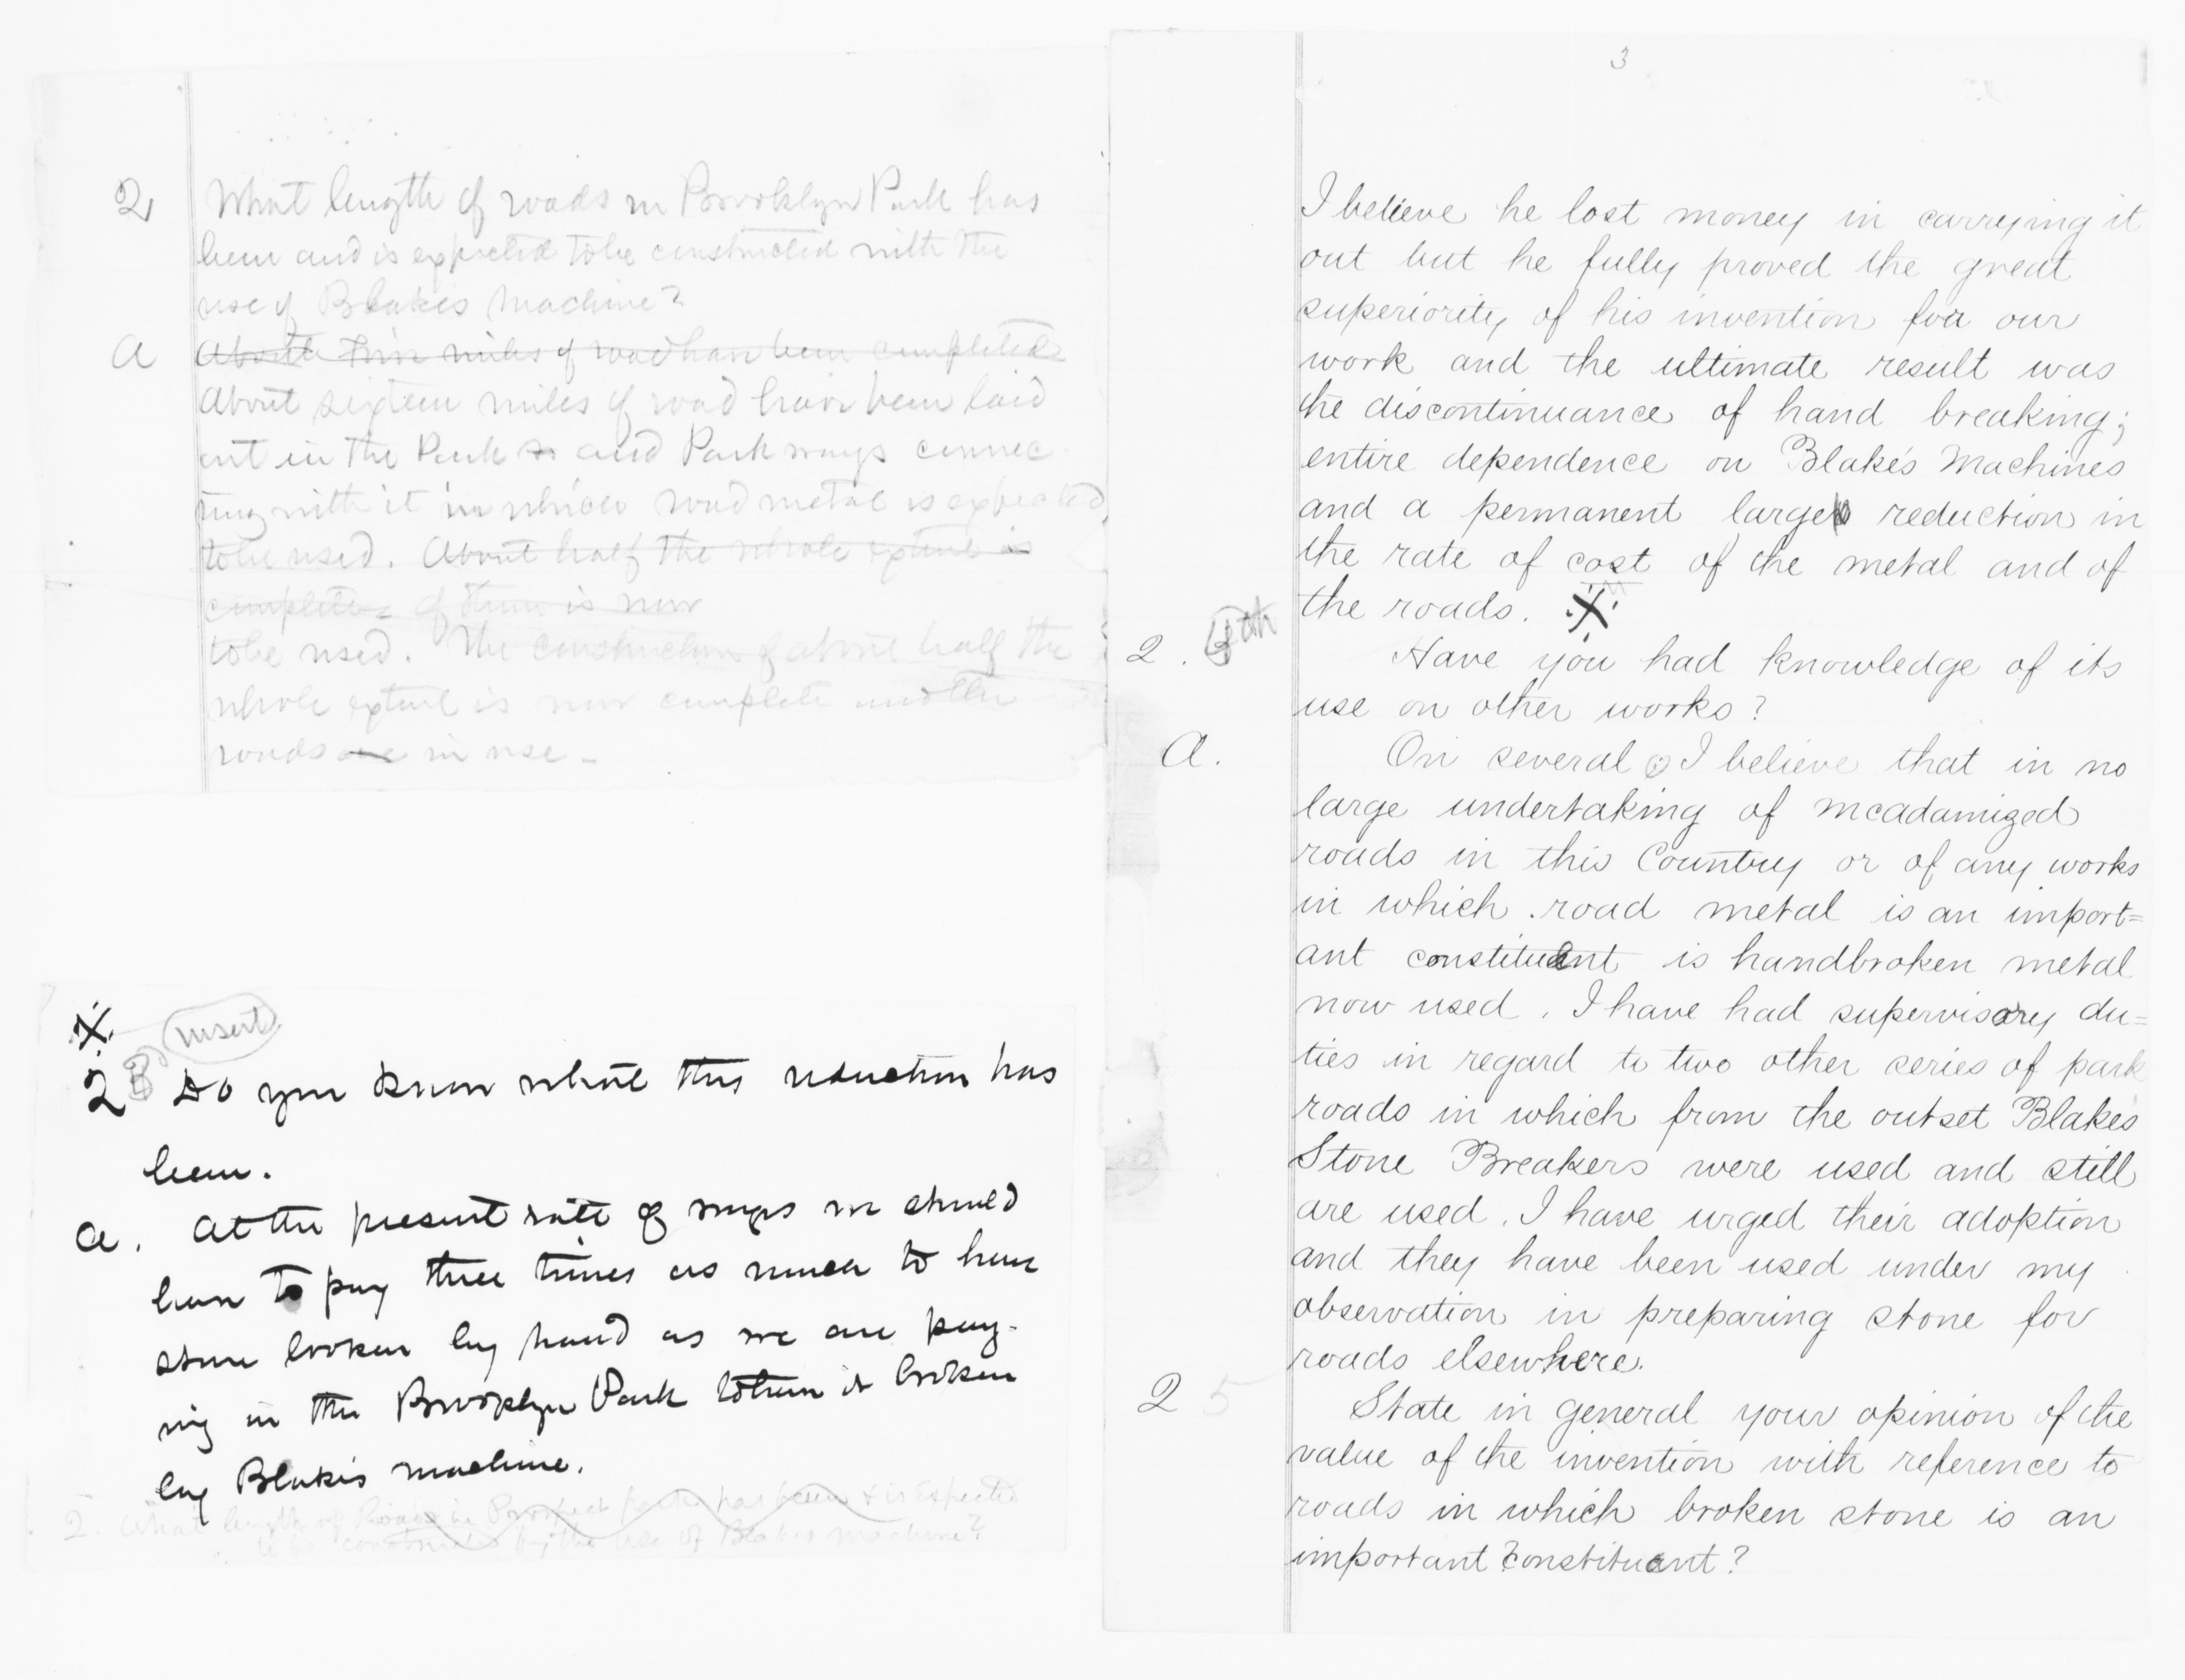 Q What length of roads in Brooklyn Park has
been and is expected to be constructed with the
use of Blake's Machine?
A About nine miles of road have been completed
About sixteen miles of road have been laid
out in the Park and Parkways connec-
ting with it in which road metal is expected
to be used. About half the whole extent is
complete of them is now
to be used. The construction of about half the
whole extent is now complete and the
roads are in use -
insert
Q 3d Do you know what this reduction has
been.
a. At the present rate of wages we should
have to pay three times as much to have
stone broken by hand as we are pay-
ing in the Brooklyn Park to have it broken
by Blake's machine.
2. What length of Roads in Prospect park has been & is Expected
to be constructed by the use of Blakes machine?
3
I believe he lost money in carrying it
out but he fully proved the great
superiority of his invention for our
work and the ultimate result was
the discontinuance of hand breaking;
entire dependence on Blake's Machines
and a permanent large reduction in
the rate of cost of the metal and of
the roads. X
2. 4th Have you had knowledge of its
use on other works?
A. On several; I believe that in no
large undertaking of mcadamized
roads in this Country or of any works
in which road metal is an import=
ant constituent is handbroken metal
now used. I have had supervisory du=
ties in regard to two other series of park
roads in which from the outset Blake's
Stone Breakers were used and still
are used. I have urged their adoption
and they have been used under my
observation in preparing stone for
roads elsewhere.
2 5 State in general your opinion of the
value of the invention with reference to
roads in which broken stone is an
important constituent?